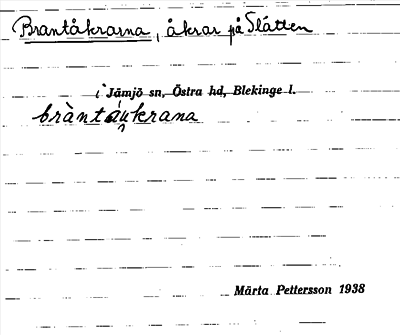 Brantåkrarna, åkrar på Slätten
i Jämjö sn, Östra hd, Blekinge l.
bràntáukrana
Märta Pettersson 1938